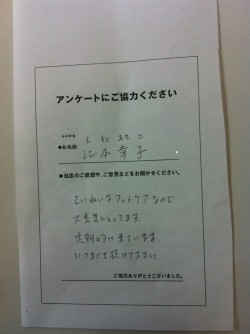 アンケートにご協力ください
ふりがな
●お名前
幸子
●当店のご感想や、ご意見などをお聞かせください。
ていねいなフットケアなので
大変気に入ってます。
定期的に来ています。
いつまでも続けて下さい。
ご協力ありがとうございました。